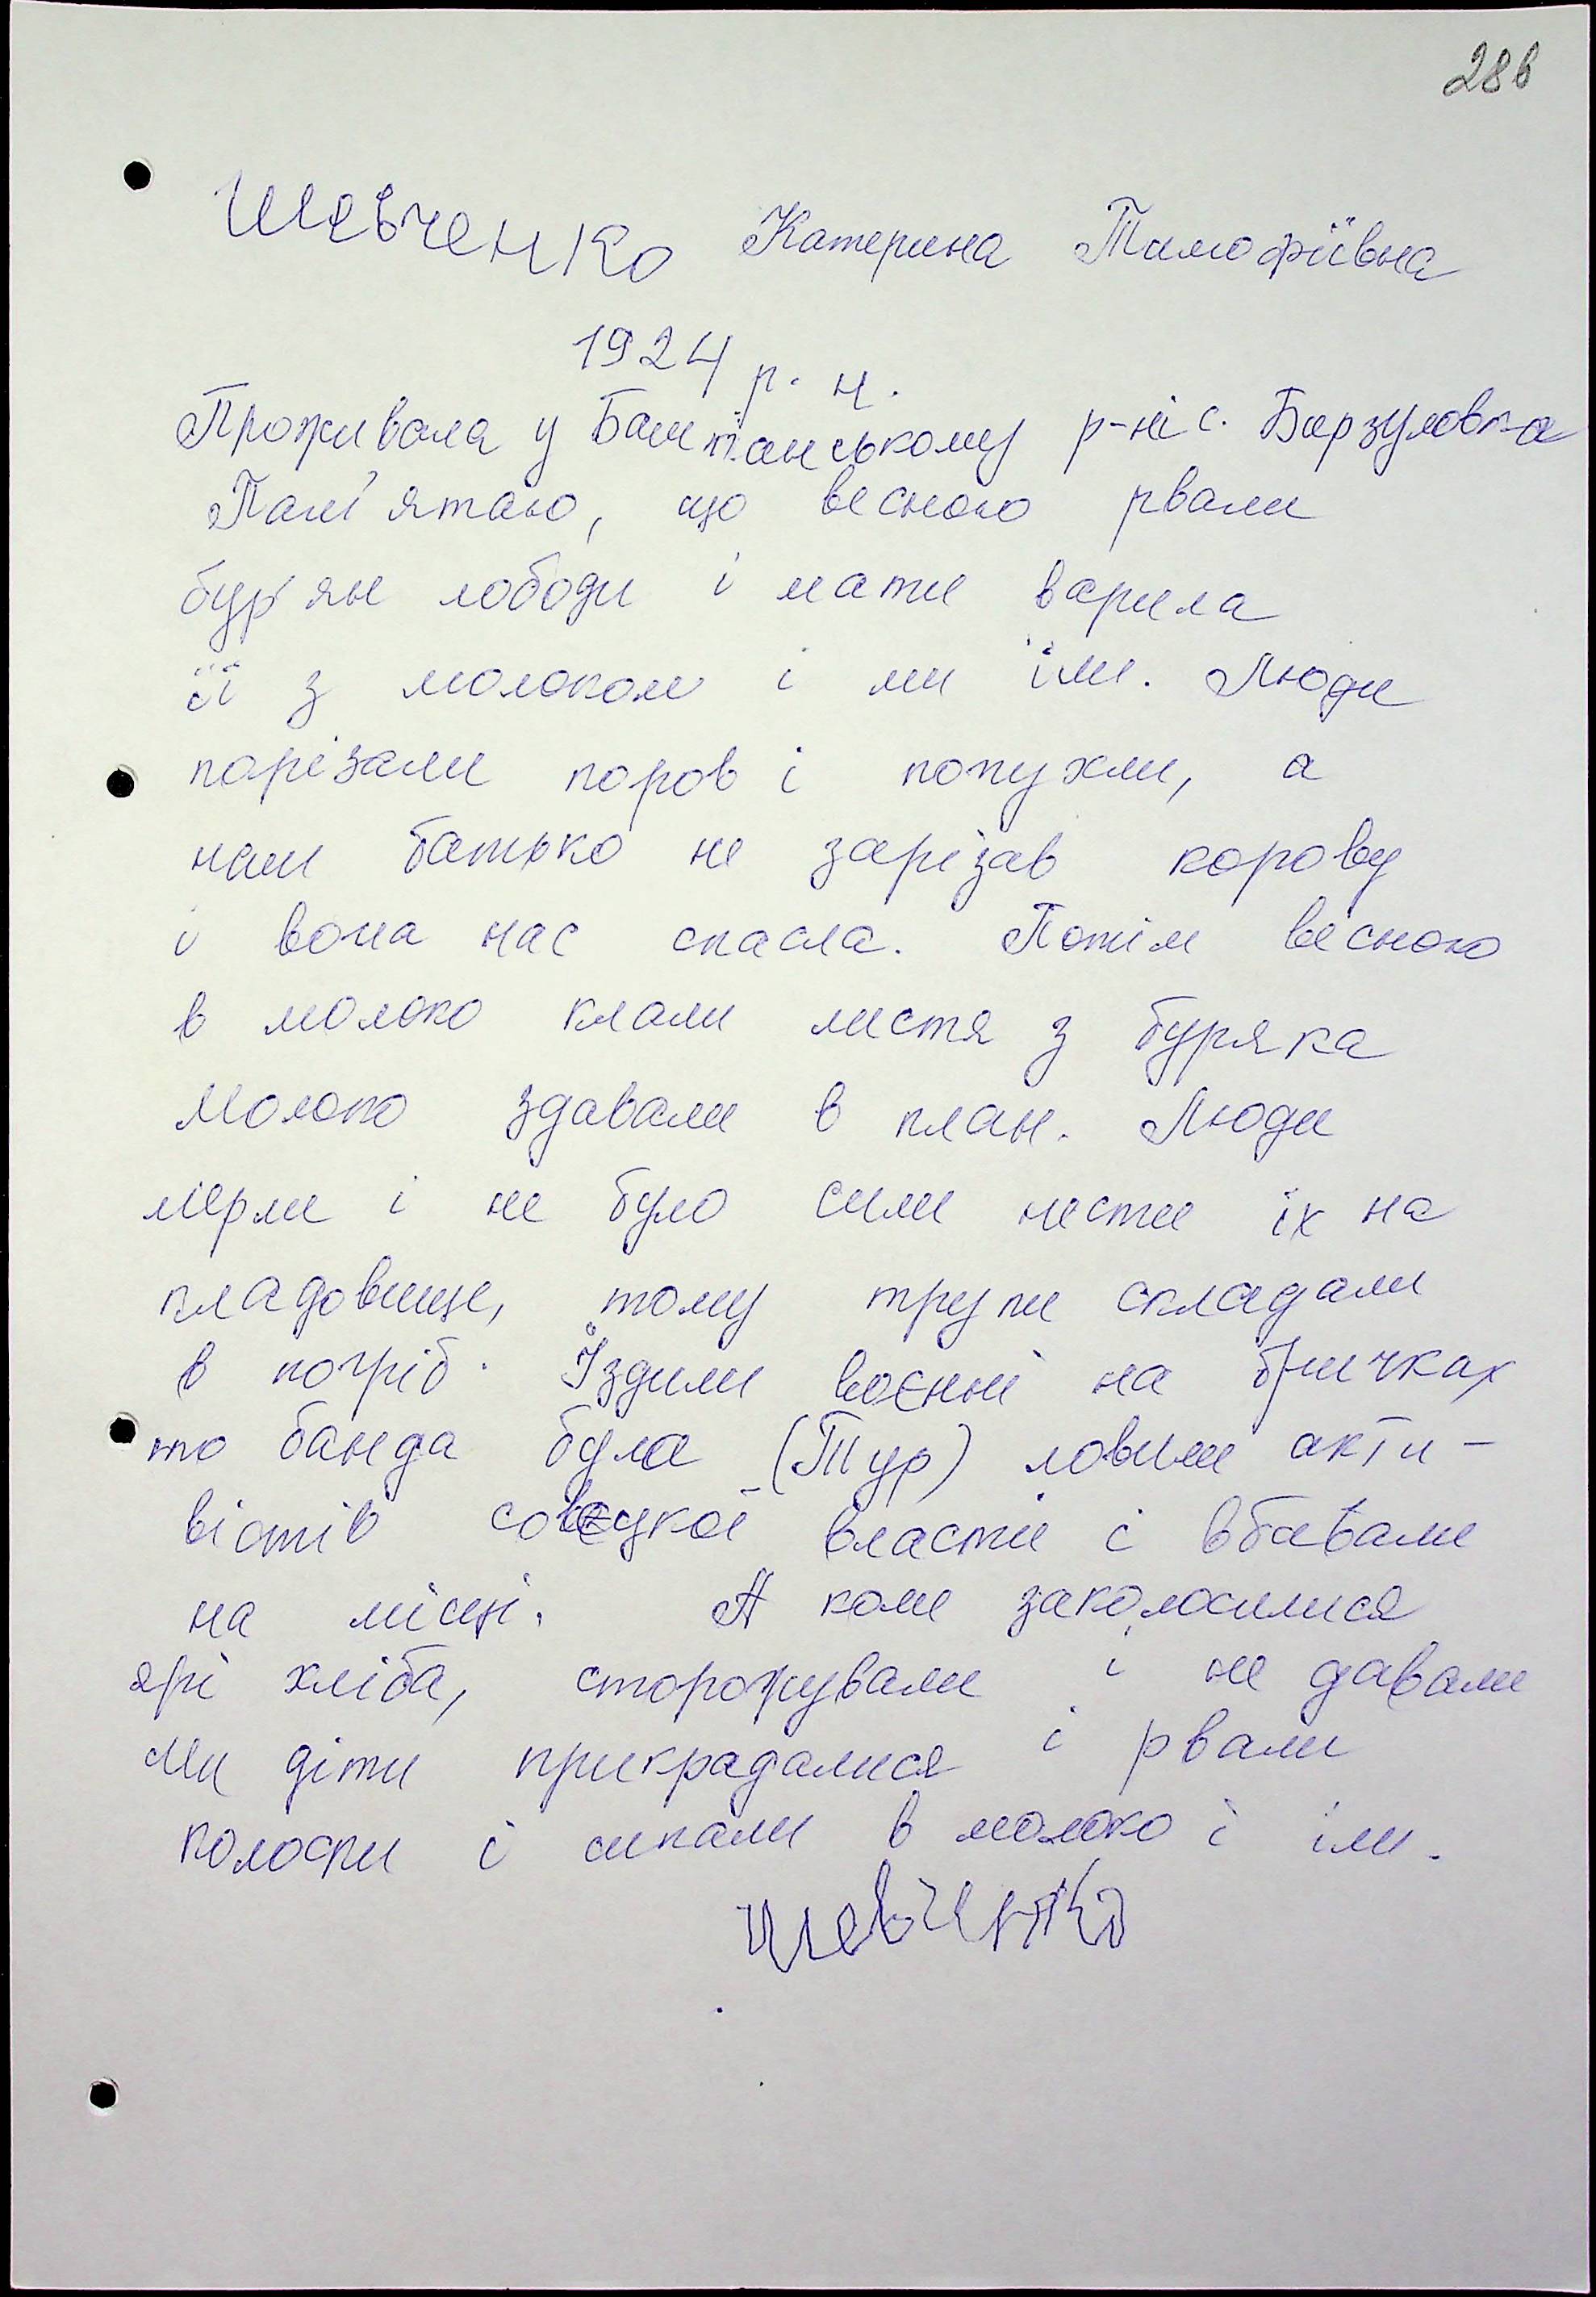 28в
Шевченко Катерина Тимофіївна
1924 р. н.
Проживала у Баштанському р-ні с. Барзуловка
Пам'ятаю, що весною рвали
бур'ян лободи і мати варила
її з молоком і ми їли. Люди
порізали коров і попухли, а
наш батько не зарізав корову
і вона нас спасла. Потім весною
в молоко клали листя з буряка
молоко здавали в план. Люди
мерли і не було сили нести їх на
кладовище, тому трупи складали
в погріб. Їздили воєнні на бричках
то банда була (Тур) ловили акти-
вістів совєцкої власти і вбивали
на місці. А коли заколосилися
ярі хліба, сторожували і не давали
Ми діти прикрадалися і рвали
колоски і сипали в молоко і їли.
Шевченко